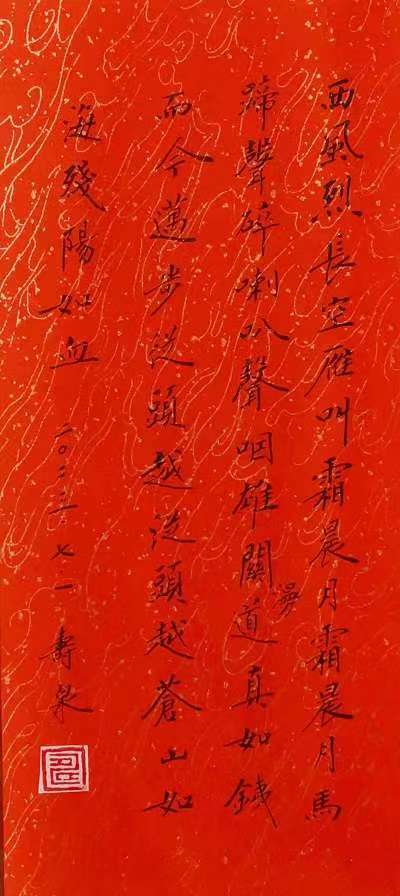 西風烈長空雁叫霜晨月霜晨月馬
蹄聲碎喇叭聲咽雄關漫道真如鐵
而今邁步從頭越從頭越蒼山如
海殘陽如血 二〇二二.七.一 壽泉